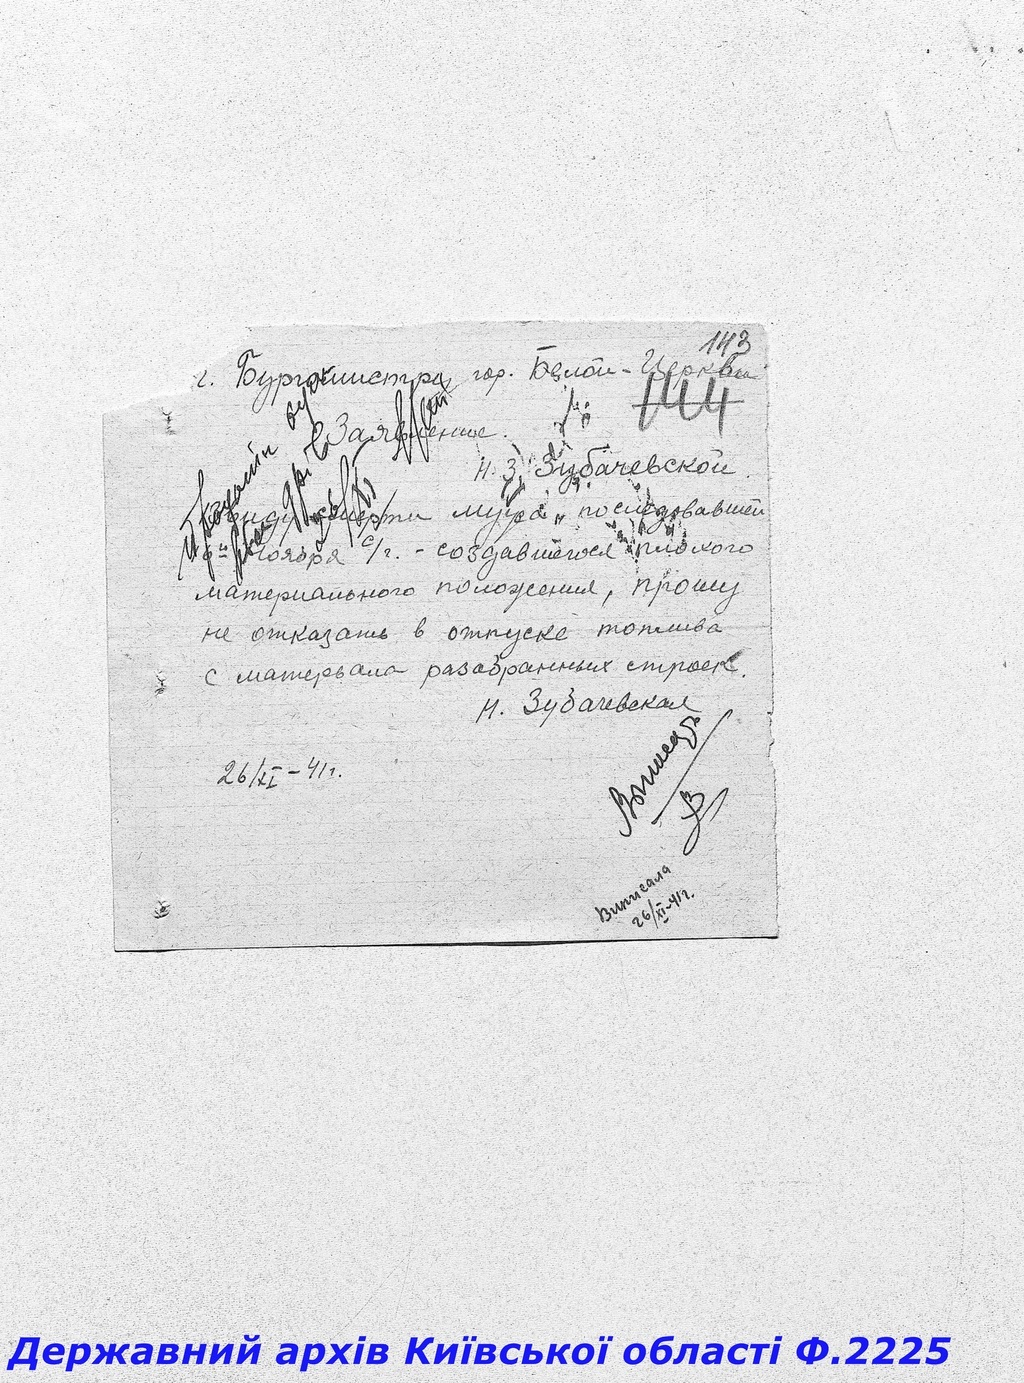 143
г. Бургомистра гор. Белой-Церкви
144
Заявление.
Н. З. Зубачевской
Ввиду смерти мужа, последовавшей
ноября с/г. - создавшегося плохого
материального положения, прошу
не отказать в отпуске топлива
с матерьала разобранных строек.
Н. Зубачевская
26/XI-41г.
Выписать
Виписала
26/XI-41г.
Державний архів Київської області Ф.2225